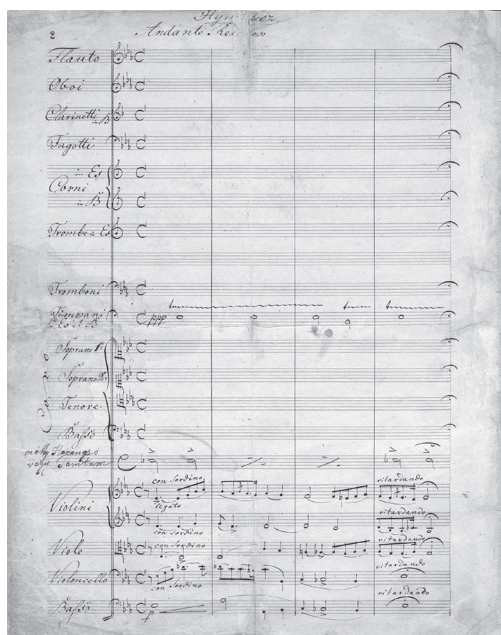 2
Andante
Flauto
Oboi
Clarinetti in B
Fagotti
in Es
Corni
in B
Trombe in Es
Tromboni
Timpani
ppp
Soprano 1º
Soprano 2º
Tenore
Basso
mély Harang
vagy Tamtam
con Sordino
ritardando
Violini
legato
ritardando
con Sordino
Viole
con Sordino
ritardando
Violoncello
con Sordino
ritardando
Basso
p
ritardando